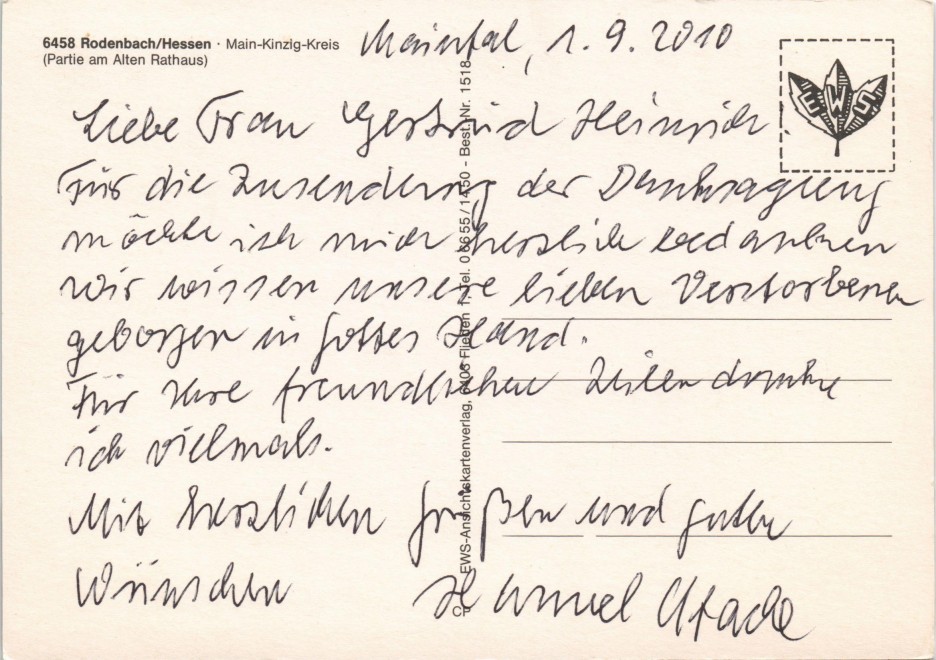 6458 Rodenbach/Hessen · Main-Kinzig-Kreis
(Partie am Alten Rathaus)
Maintal, 1. 9. 2010
EWS
Liebe Frau Gertrud Heinrich!
Für die Zusendung der Danksagung
möchte ich mich herzlich bedanken
wir wissen unsere lieben Verstorbenen
geborgen in Gottes Hand.
Für Ihre freundlichen Zeilen danke
ich vielmals.
Mit herzlichen Grüßen und guten
Wünschen
EWS-Ansichtskartenverlag, 6403 Flieden 1, Tel. 06655/1450 - Best. Nr. 1518